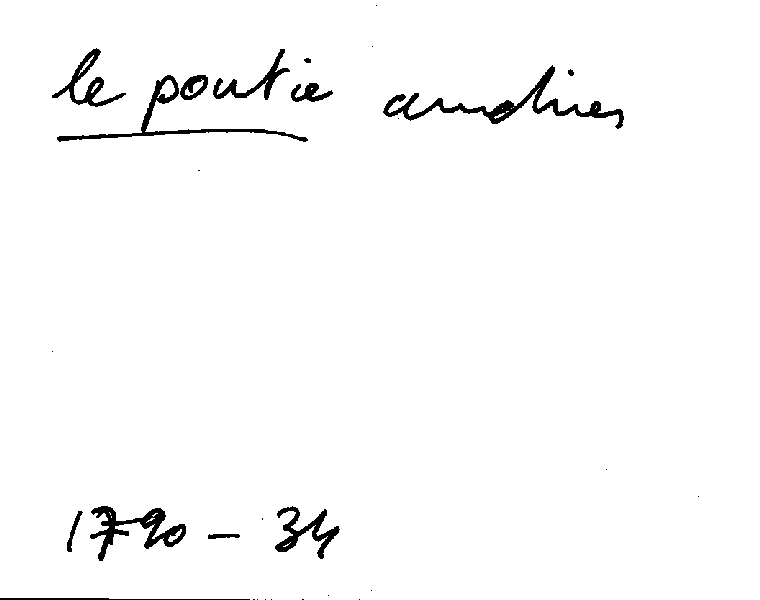 le poutie andries
1790 - 34